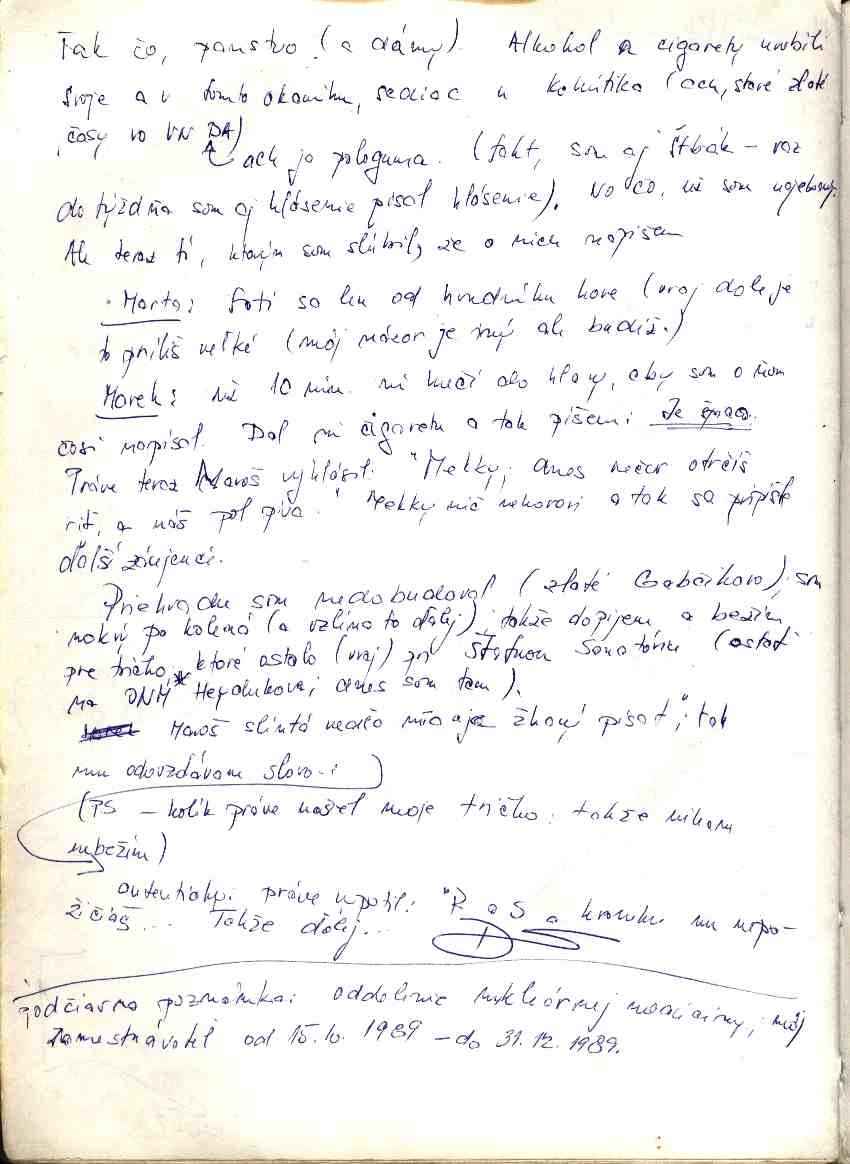 Tak čo, panstvo! (a dámy). Alkohol a cigarety urobili
svoje a v tomto okamihu, sediac u Kohútika (ach, staré zlaté
časy vo VN BA)
ach ja pologuma. (fakt, som aj Štbák – raz
do týždňa som aj hlásenie písal hlásenie). No čo, už som
Ale teraz tí, ktorým som sľúbil, že o nich napíšem
Marta: fotí sa len od hrudníku hore (vraj dole je
to príliš veľké (môj názor je iný ale budiž.)
Marek: už 10 min. mi hučí do hlavy, aby som o ňom
čosi napísal. Dal mi cigaretu a tak píšem: Je
Práve teraz Maroš vyhlásil: "Mekky, dnes večer otrčíš
riť, a máš pol piva." Mekky nič nehovorí a tak sa prípište
ďalší záujemci.
Priehradu som nedobudoval (zlaté Gabčíkovo), som
mokrý po kolená (a vzlína to ďalej), takže dopijem a bežím
pre tričko* ktoré ostalo (vraj) pri Štátnom Sanatóriu (ostať
na ONM* Heydukova; dnes som tam).
Maroš slintá niečo písať", tak
mu odovzdávam slovo:
(PS – kolík práve našiel moje tričko, takže nikam
nebežím)
autenticky: práve vypotil: "R a S a kroniku mu nepo-
žičiaš... Takže ďalej...
podčiarna poznámka: oddelenie nukleárnej medicíny, môj
zamestnávateľ od 15.10. 1989 – do 31.12.1989.